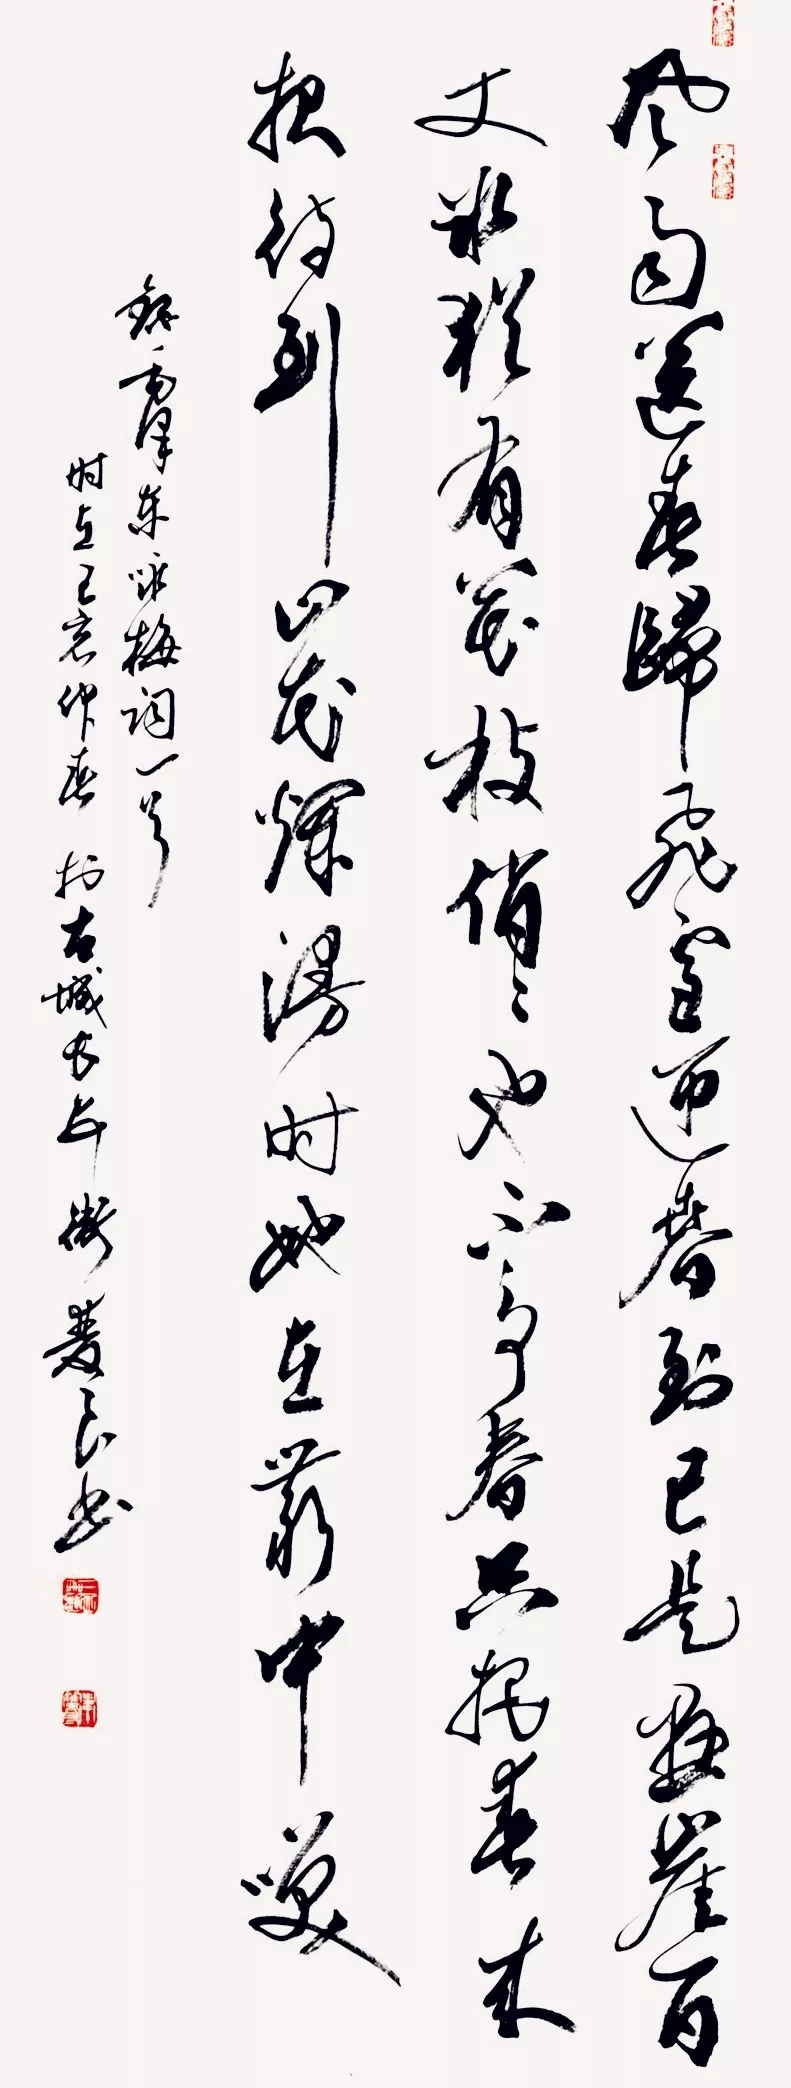 风雨送春歸飛雪迎春到已是懸崖百
丈冰犹有花枝俏〻也不争春只把春来
报待到山花爛漫时她在叢中笑
錄毛澤东咏梅词一首
时在己亥仲春於古城长安良书